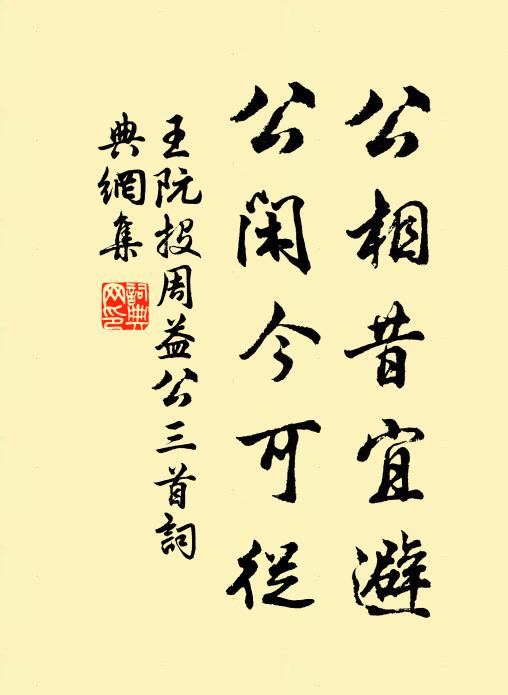 公相昔宜避
公閑今可從
王阮投周益公三首詞
典網集
詞典網印